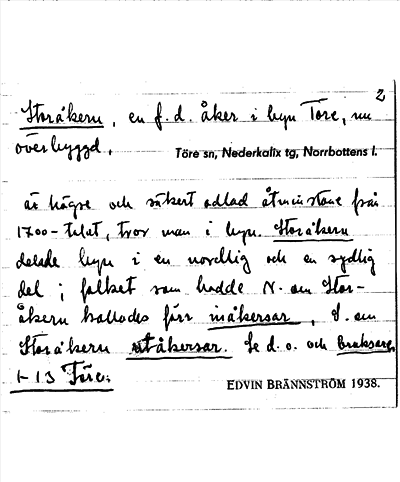 2
Storåkern, en f.d. åker i byn Töre, nu
överbyggd.
Töre sn, Nederkalix tg, Norrbottens l.
är högre och säkert odlad åtminstone från
1700-talet, tror man i byn. Storåkern
delade byn i en nordlig och en sydlig
del; folket som bodde N. om Stor-
åkern kallades förr inåkersar, S. om
Storåkern utåkersar. Se d.o. och
1-13 Töre.
EDVIN BRÄNNSTRÖM 1938.